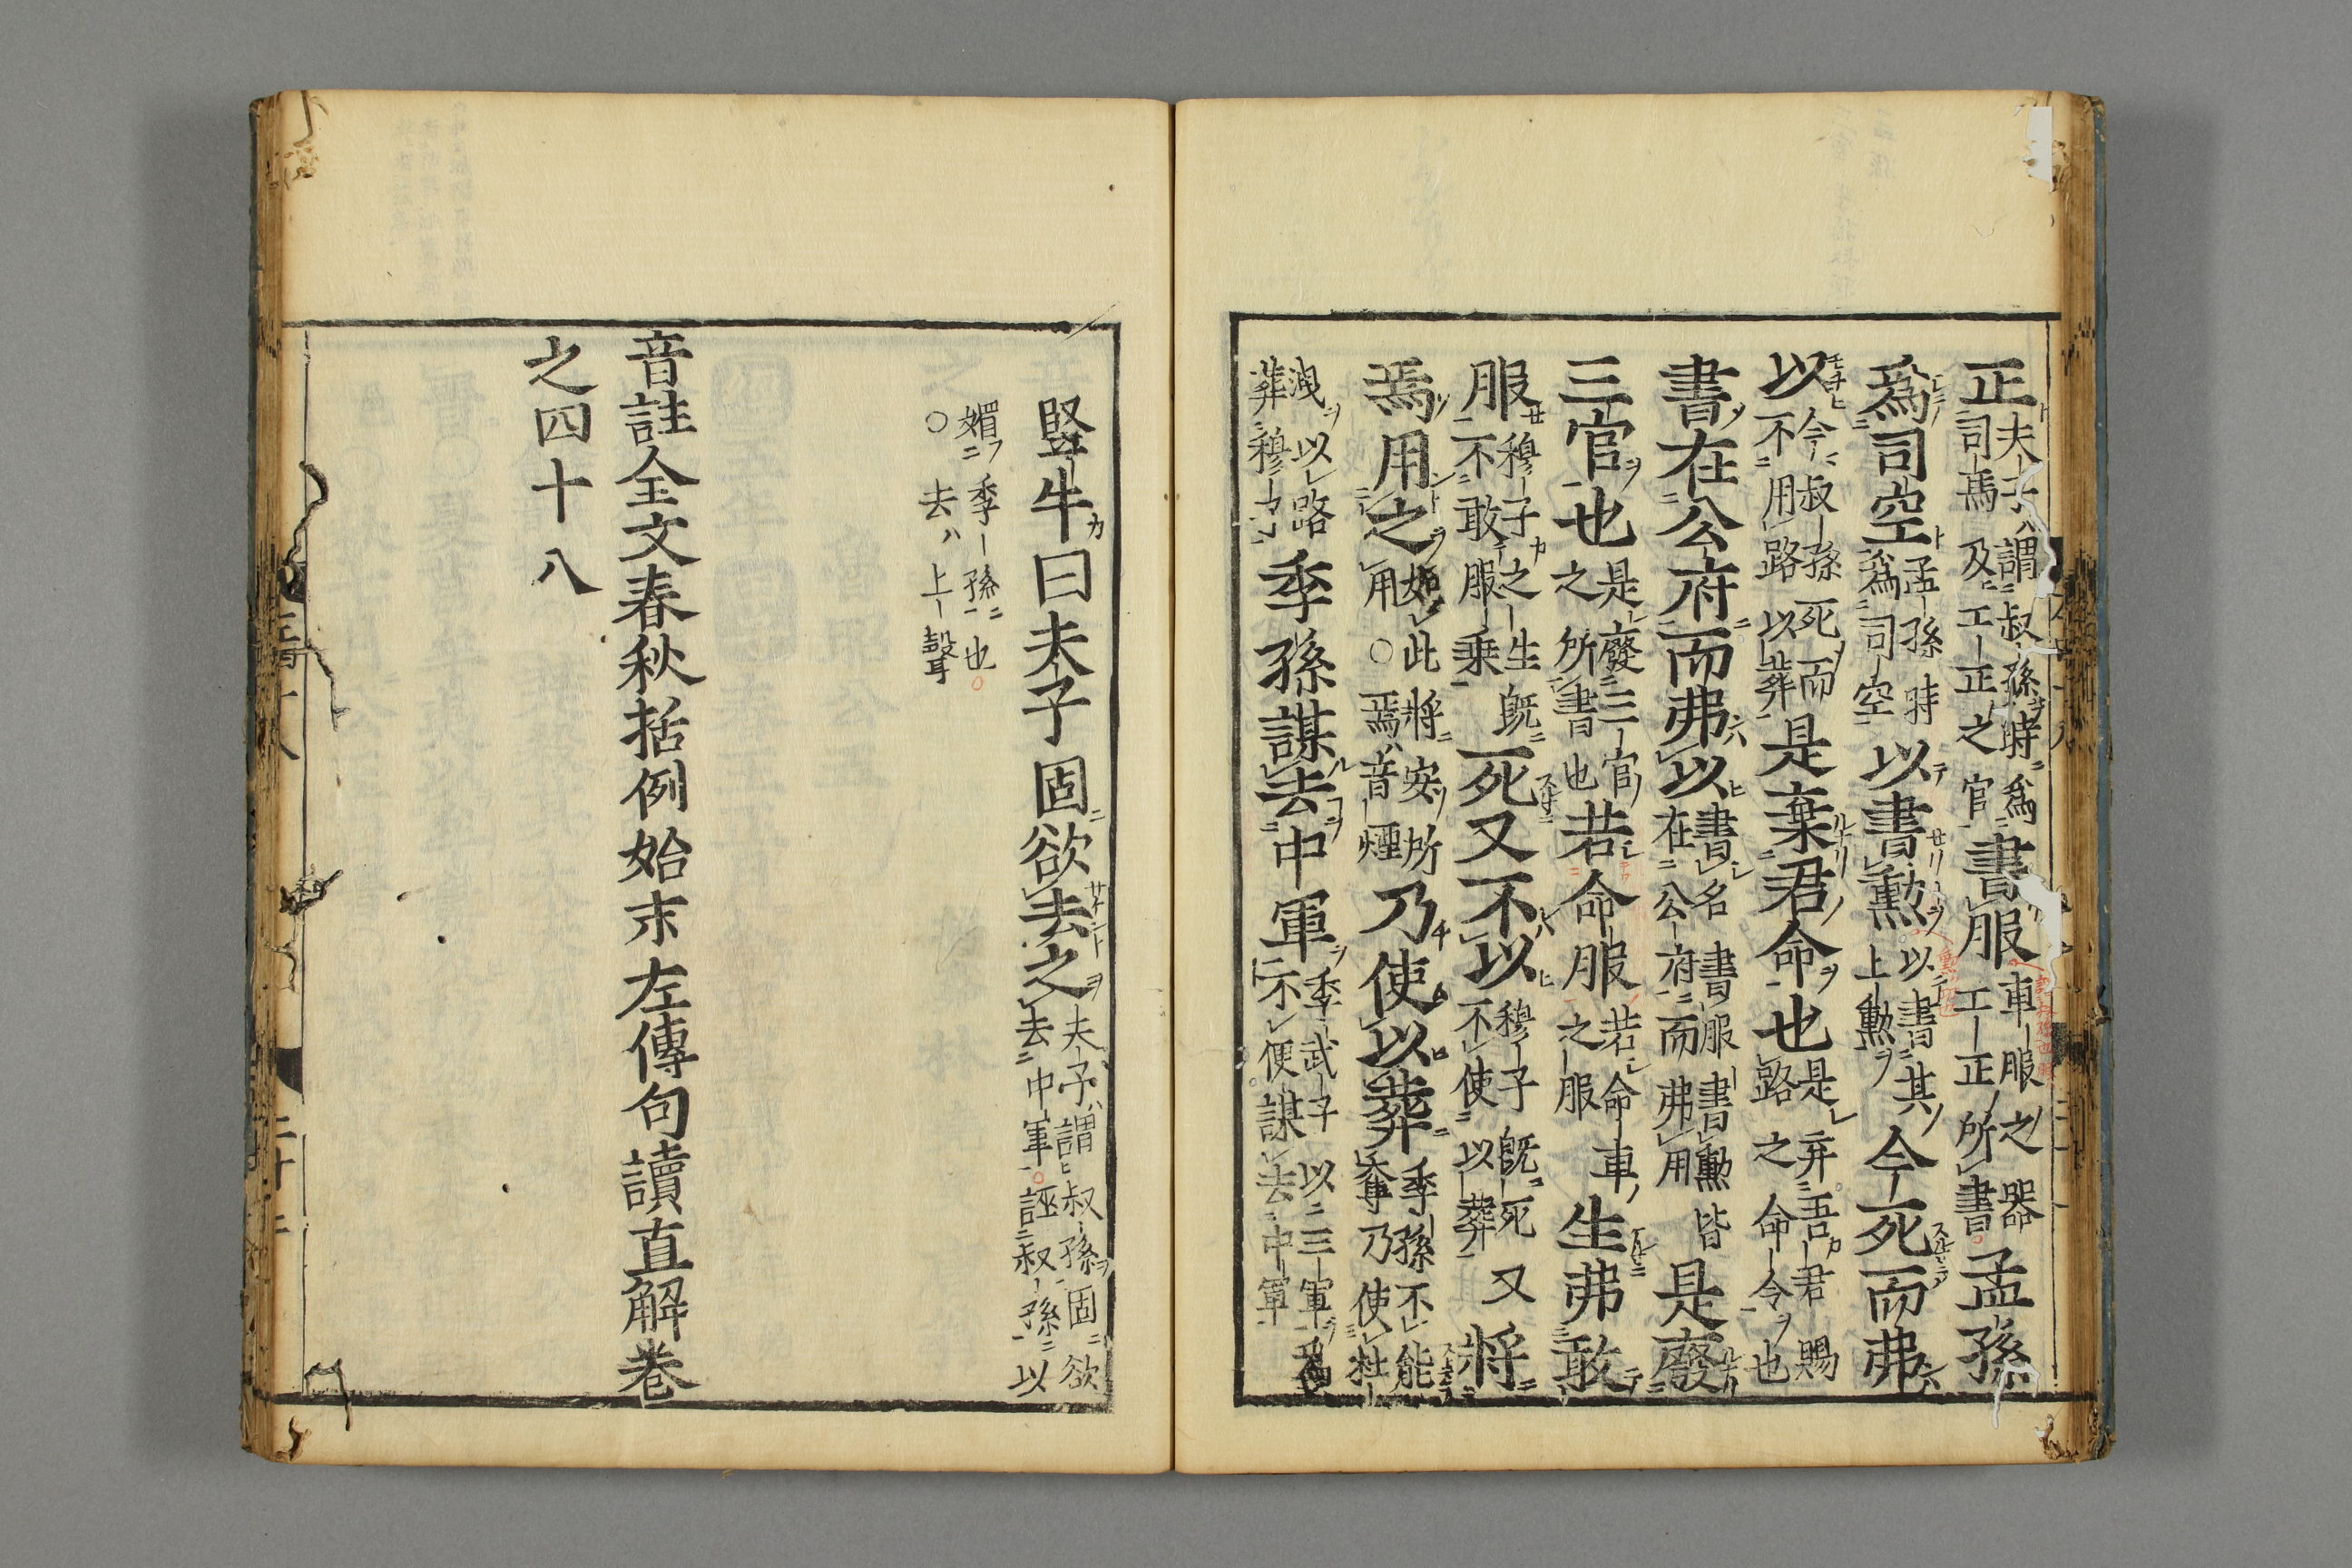 正夫子謂叔孫時為司馬及工正之官書服車服之器工正所書孟孫
爲司空孟孫時為司空以書勲以書其上勲今死而弗
以今叔孫死而不用路以葬是棄君命也是弃吾君賜路之命令也
書在公府而弗以書名書服書勲皆在公府而弗用是廢
三官也是廢三官之所書也若命服若命車之服生弗敢
服穆子之生既不敢服乗死又不以穆子既死不使以葬又將
焉用之如此將安所用○焉音煙乃使以葬季孫不能奪乃使杜
洩以路葬穆子季孫謀去中軍季武子以三軍爲不便謀去中軍
豎牛曰夫子固欲去之夫子謂叔孫固欲去中軍誣叔孫以
媚季孫也○去上聲
音註全文春秋括例始末左傳句讀直解巻
之四十八